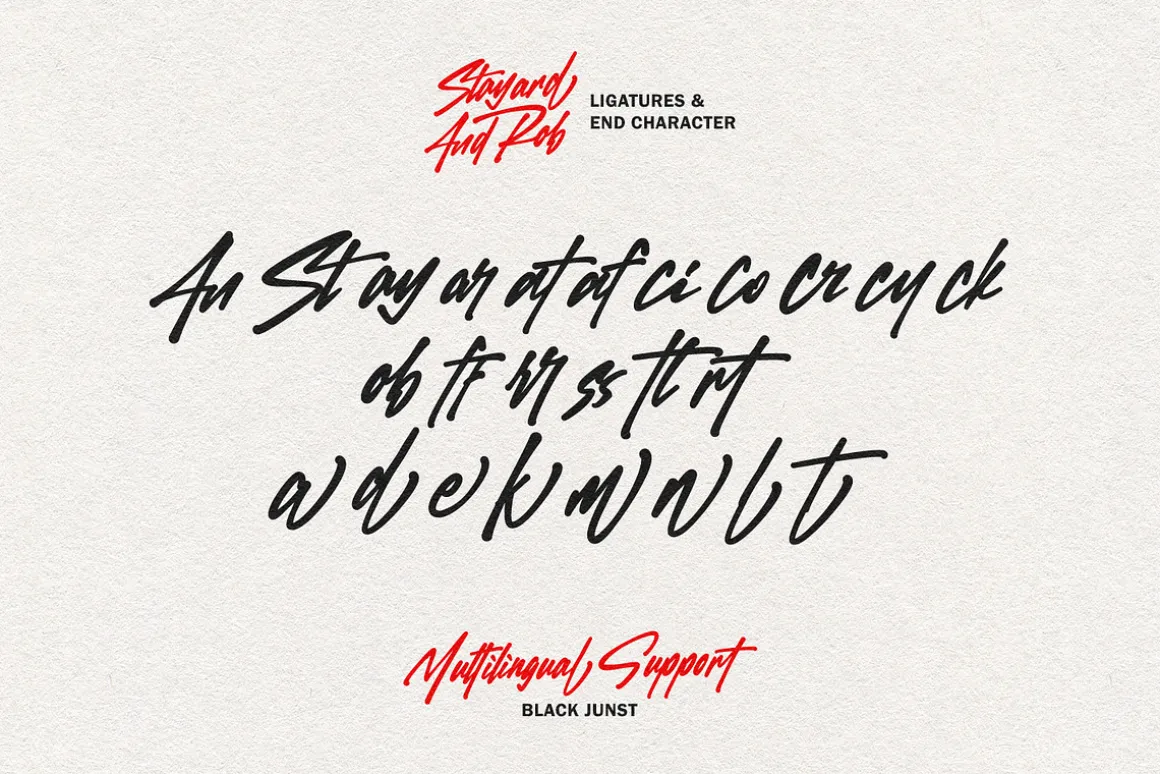 Stayard
And Rob
LIGATURES &
END CHARACTER
An St ay ar at af ci co cr cy ck
ob ff rr ss tt rt
a d e k m n l t
Multilingual Support
BLACK JUNST